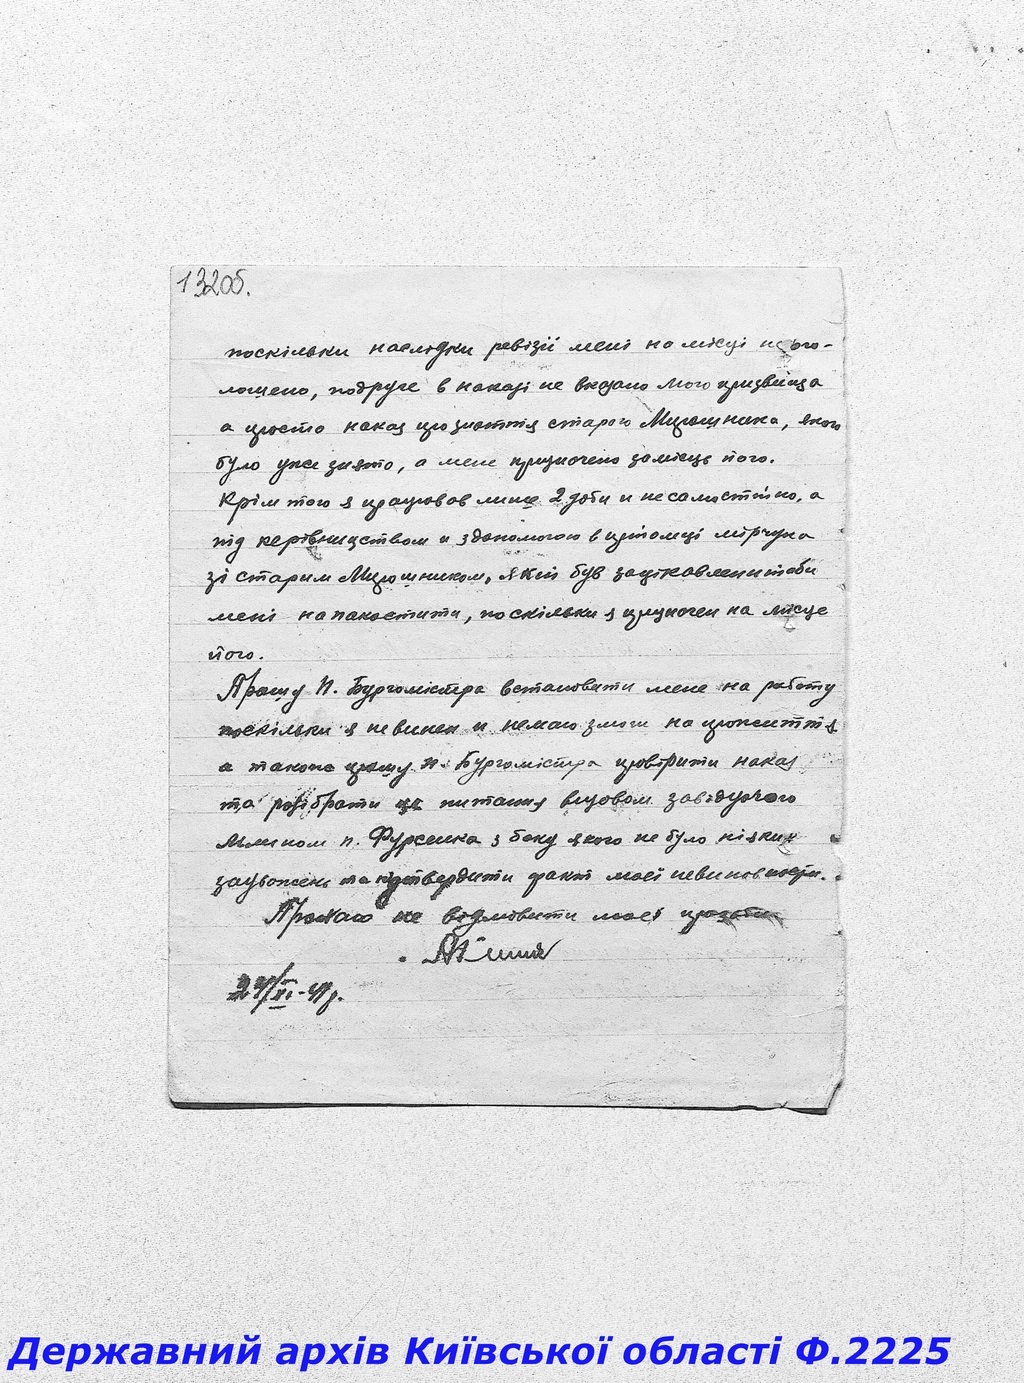 132об.
поскільки наслідки ревізії мені на місці не ого-
лошено, подруге в наказі не вказано мого призвища
а просто наказ про зняття старого Мирошника, якого
було уже знято, а мене призначено замісць його.
Крім того я працював лише 2 доби и не самостійно, а
під керівництвом и з допомогою в
зі старим Мирошником, який був заціковлени щоби
мені напакостити, поскільки я призначен на місце
його.
Прошу п. Бургомістра встановити мене на работу
поскільки я не винен и немаю змоги на прожиття
а також прошу п. Бургомістра наказ
та розібрати це питання визовом завідуючого
млином п. Фурсенка з боку якого не було ніяких
зауважень та підтвердити факт моєї невиновности.
Прохаю не відмовити моєї прозьби
27/XI-41р.
Державний архів Київської області Ф.2225